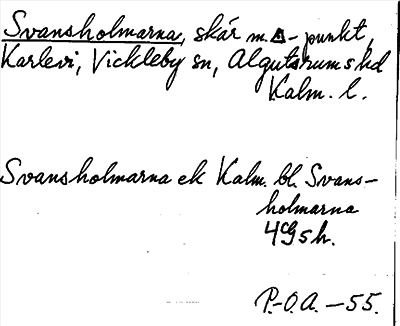 Svansholmarna, skär m. Δ-punkt,
Karlevi, Vickleby sn, Algutsrums hd
Kalm. l.
Svansholmarna ek Kalm. bl. Svans-
holmarna
4G5h.
P.-O.A. -55.